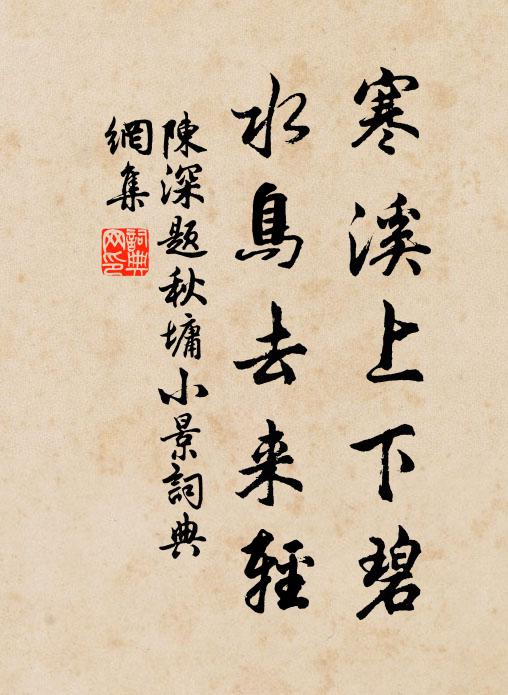 寒溪上下碧
水鳥去来輕
陳深题秋塘小景詞典
網集
詞典
网印